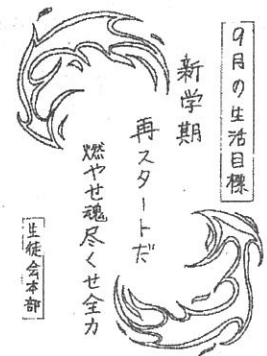 9月の生活目標
新学期
再スタートだ
燃やせ魂尽くせ全力
生徒会本部